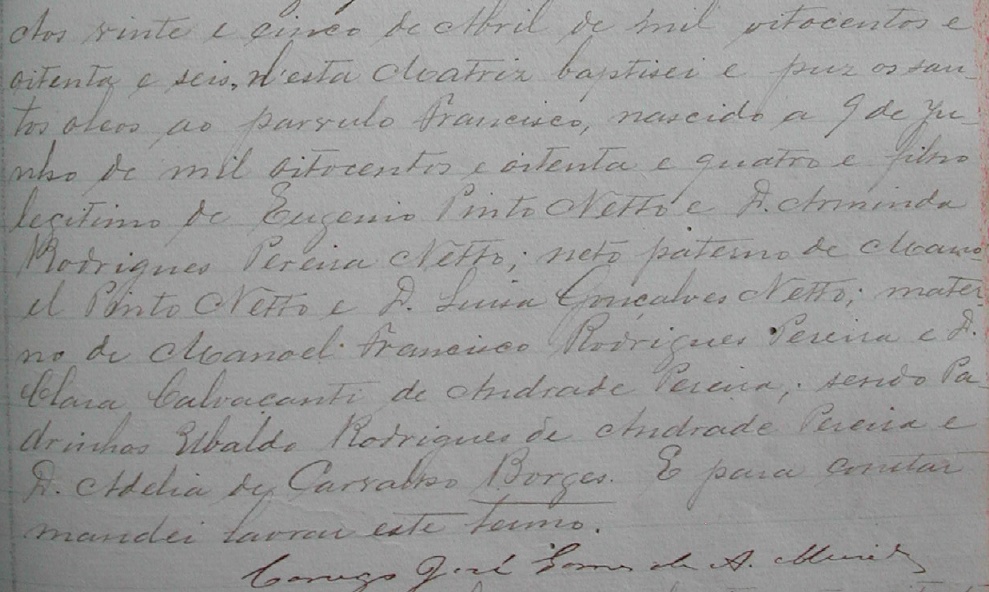 Aos vinte e cinco de Abril de mil oitocentos e
oitenta e seis, n'esta Matriz baptisei e puz os san-
tos oleos ao parvulo Francisco, nascido a 9 de Ju-
nho de mil oitocentos e oitenta e quatro e filho
legitimo de Eugenio Pinto Netto e D. Arminda
Rodrigues Pereira Netto; neto paterno de Mano
el Pinto Netto e D. Luisa Gonçalves Netto; mater-
no de Manoel Francisco Rodrigues Pereira e D.
Clara Calvacanti de Andrade Pereira; sendo Pa-
drinhos Ubaldo Rodrigues de Andrade Pereira e
D. Adelia de Carvalho Borges. E para constar
mandei lavrar este termo.
Conego José Gomes de A.